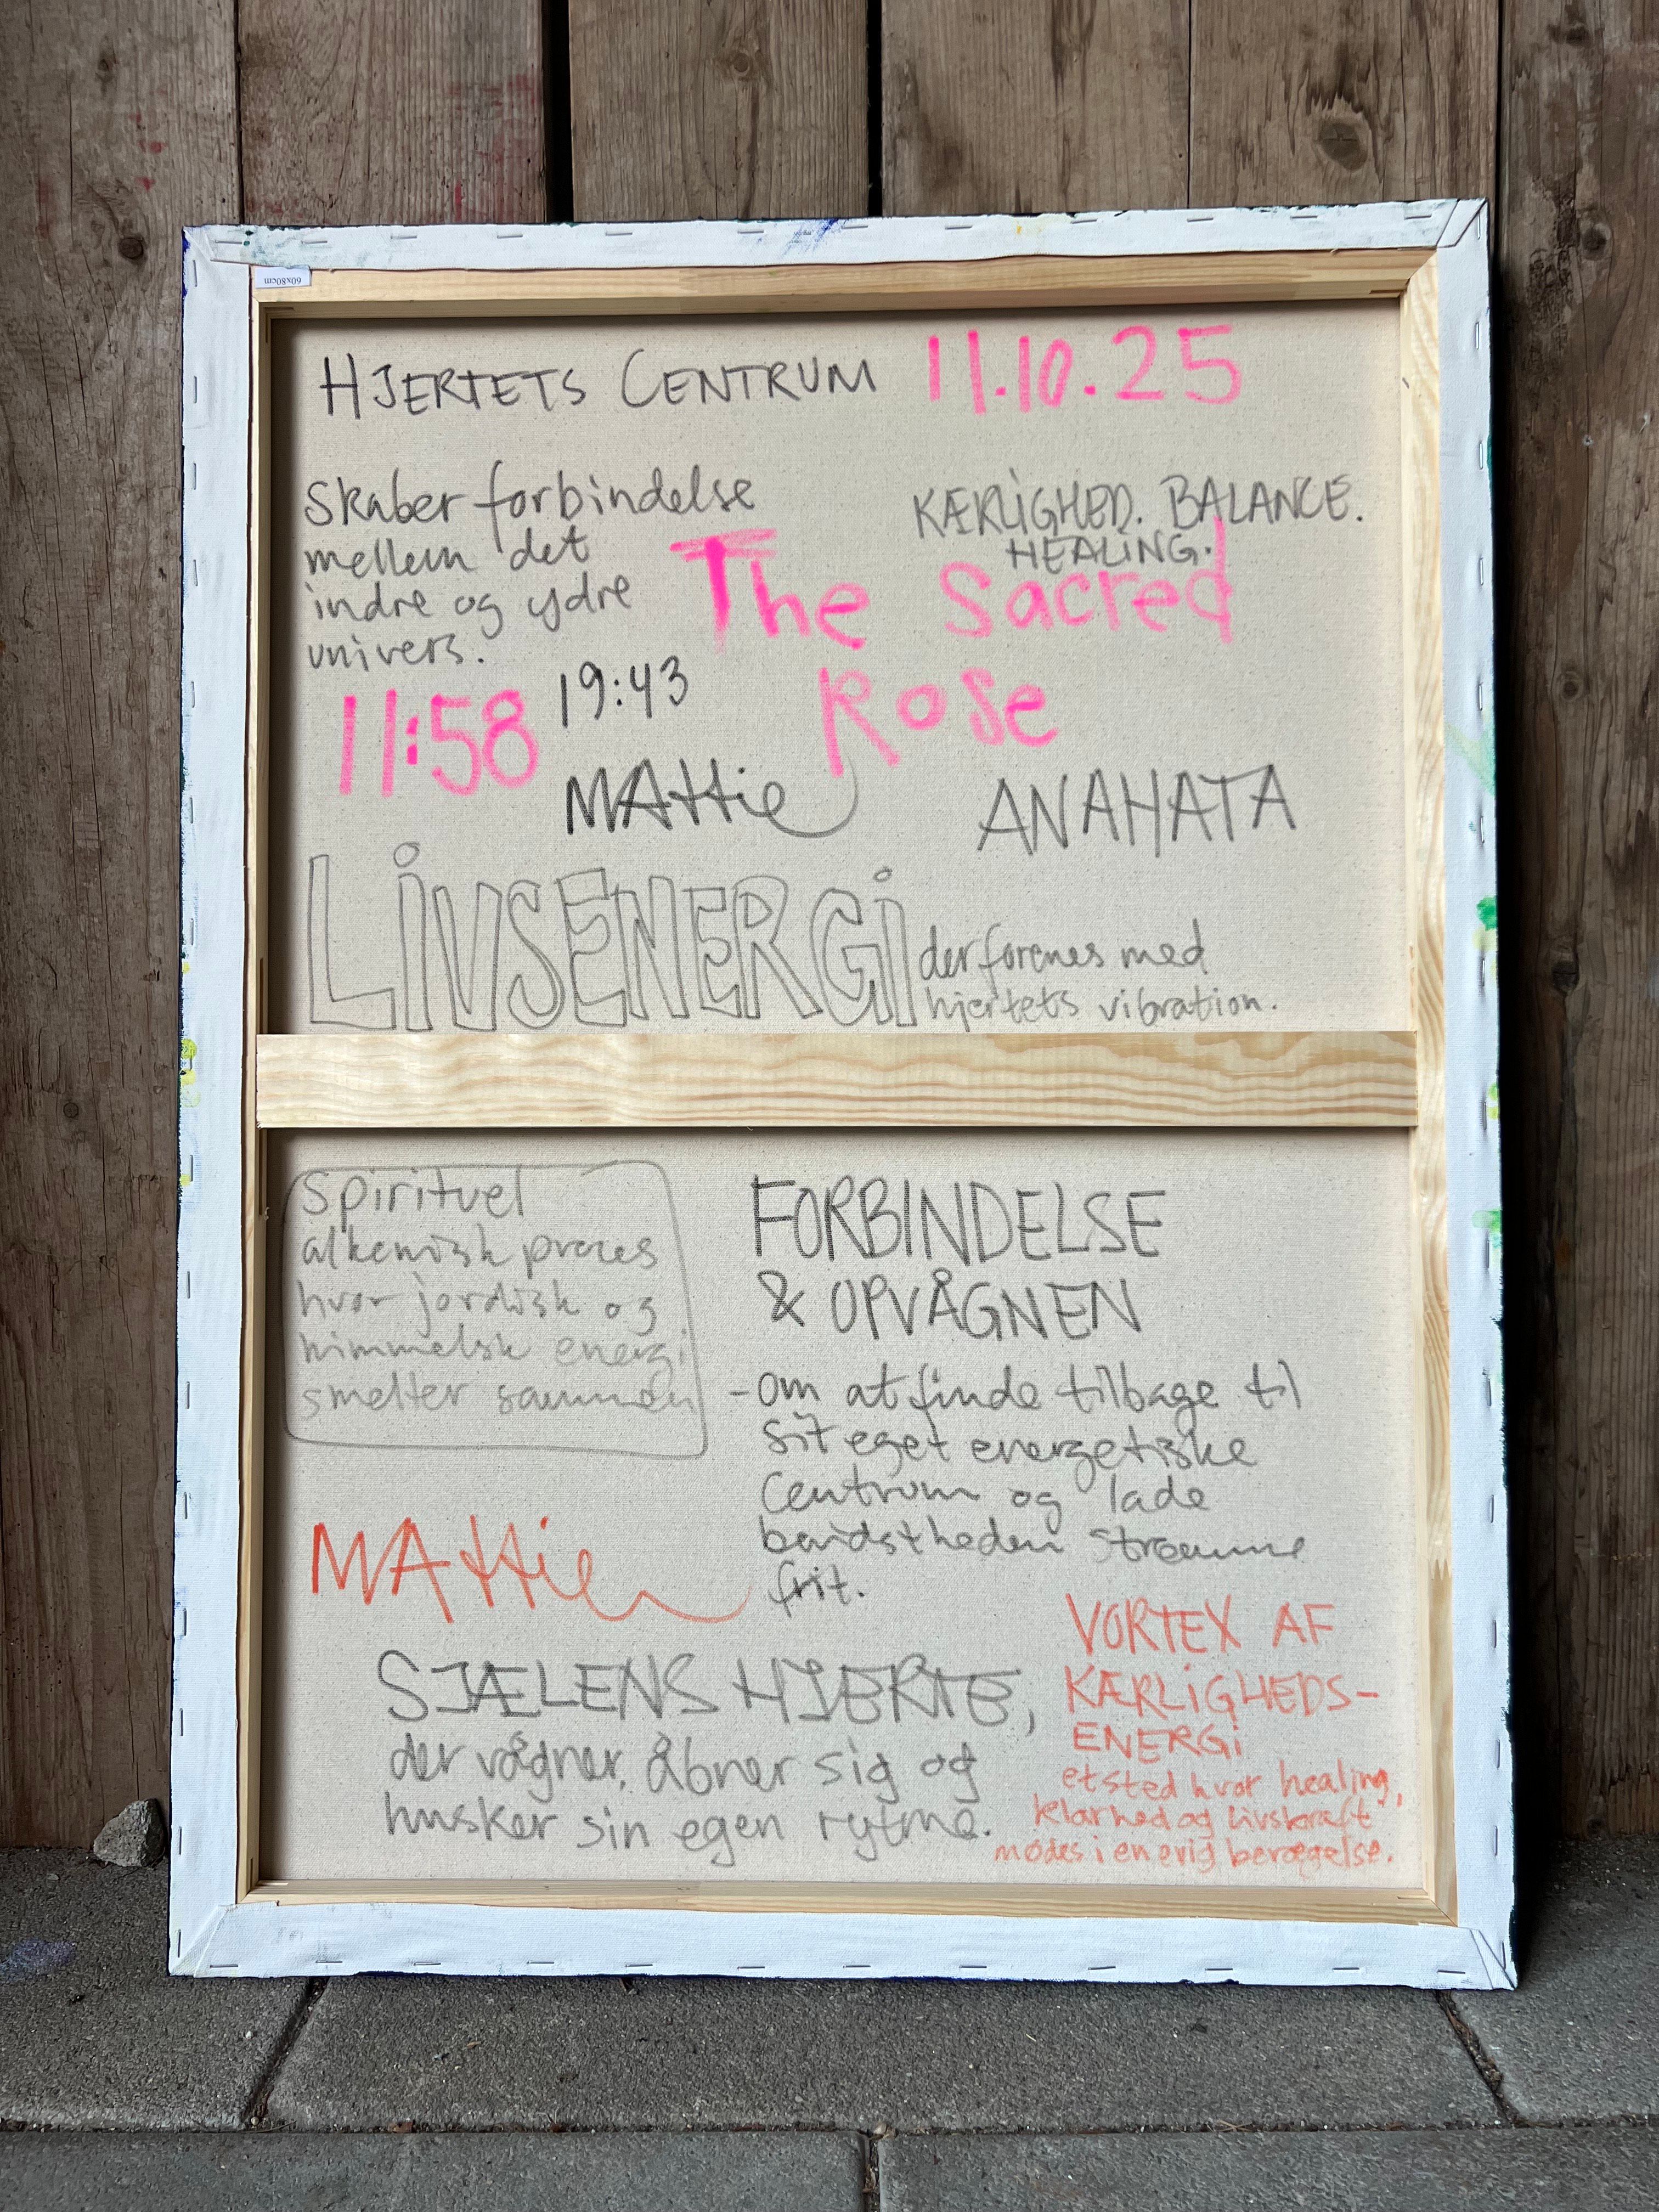 60x80cm
HJERTETS CENTRUM 11.10.25
Skaber forbindelse
mellem det
indre og ydre
univers.
KÆRLIGHED. BALANCE.
HEALING.
The Sacred
Rose
11:58
19:43
MAttie
ANAHATA
LIVSENERGI
der forenes med
hjertets vibration.
Spirituel
alkemisk proces
hvor jordisk og
himmelsk energi
smelter sammen
FORBINDELSE
& OPVÅGNEN
- om at finde tilbage til
sit eget energetiske
Centrum og lade
bevidstheden strømme
frit.
MAttie
SJÆLENS HJERTE,
der vågner, åbner sig og
husker sin egen rytme.
VORTEX AF
KÆRLIGHEDS-
ENERGI
et sted hvor healing,
klarhed og livskraft
mødes i en evig bevægelse.